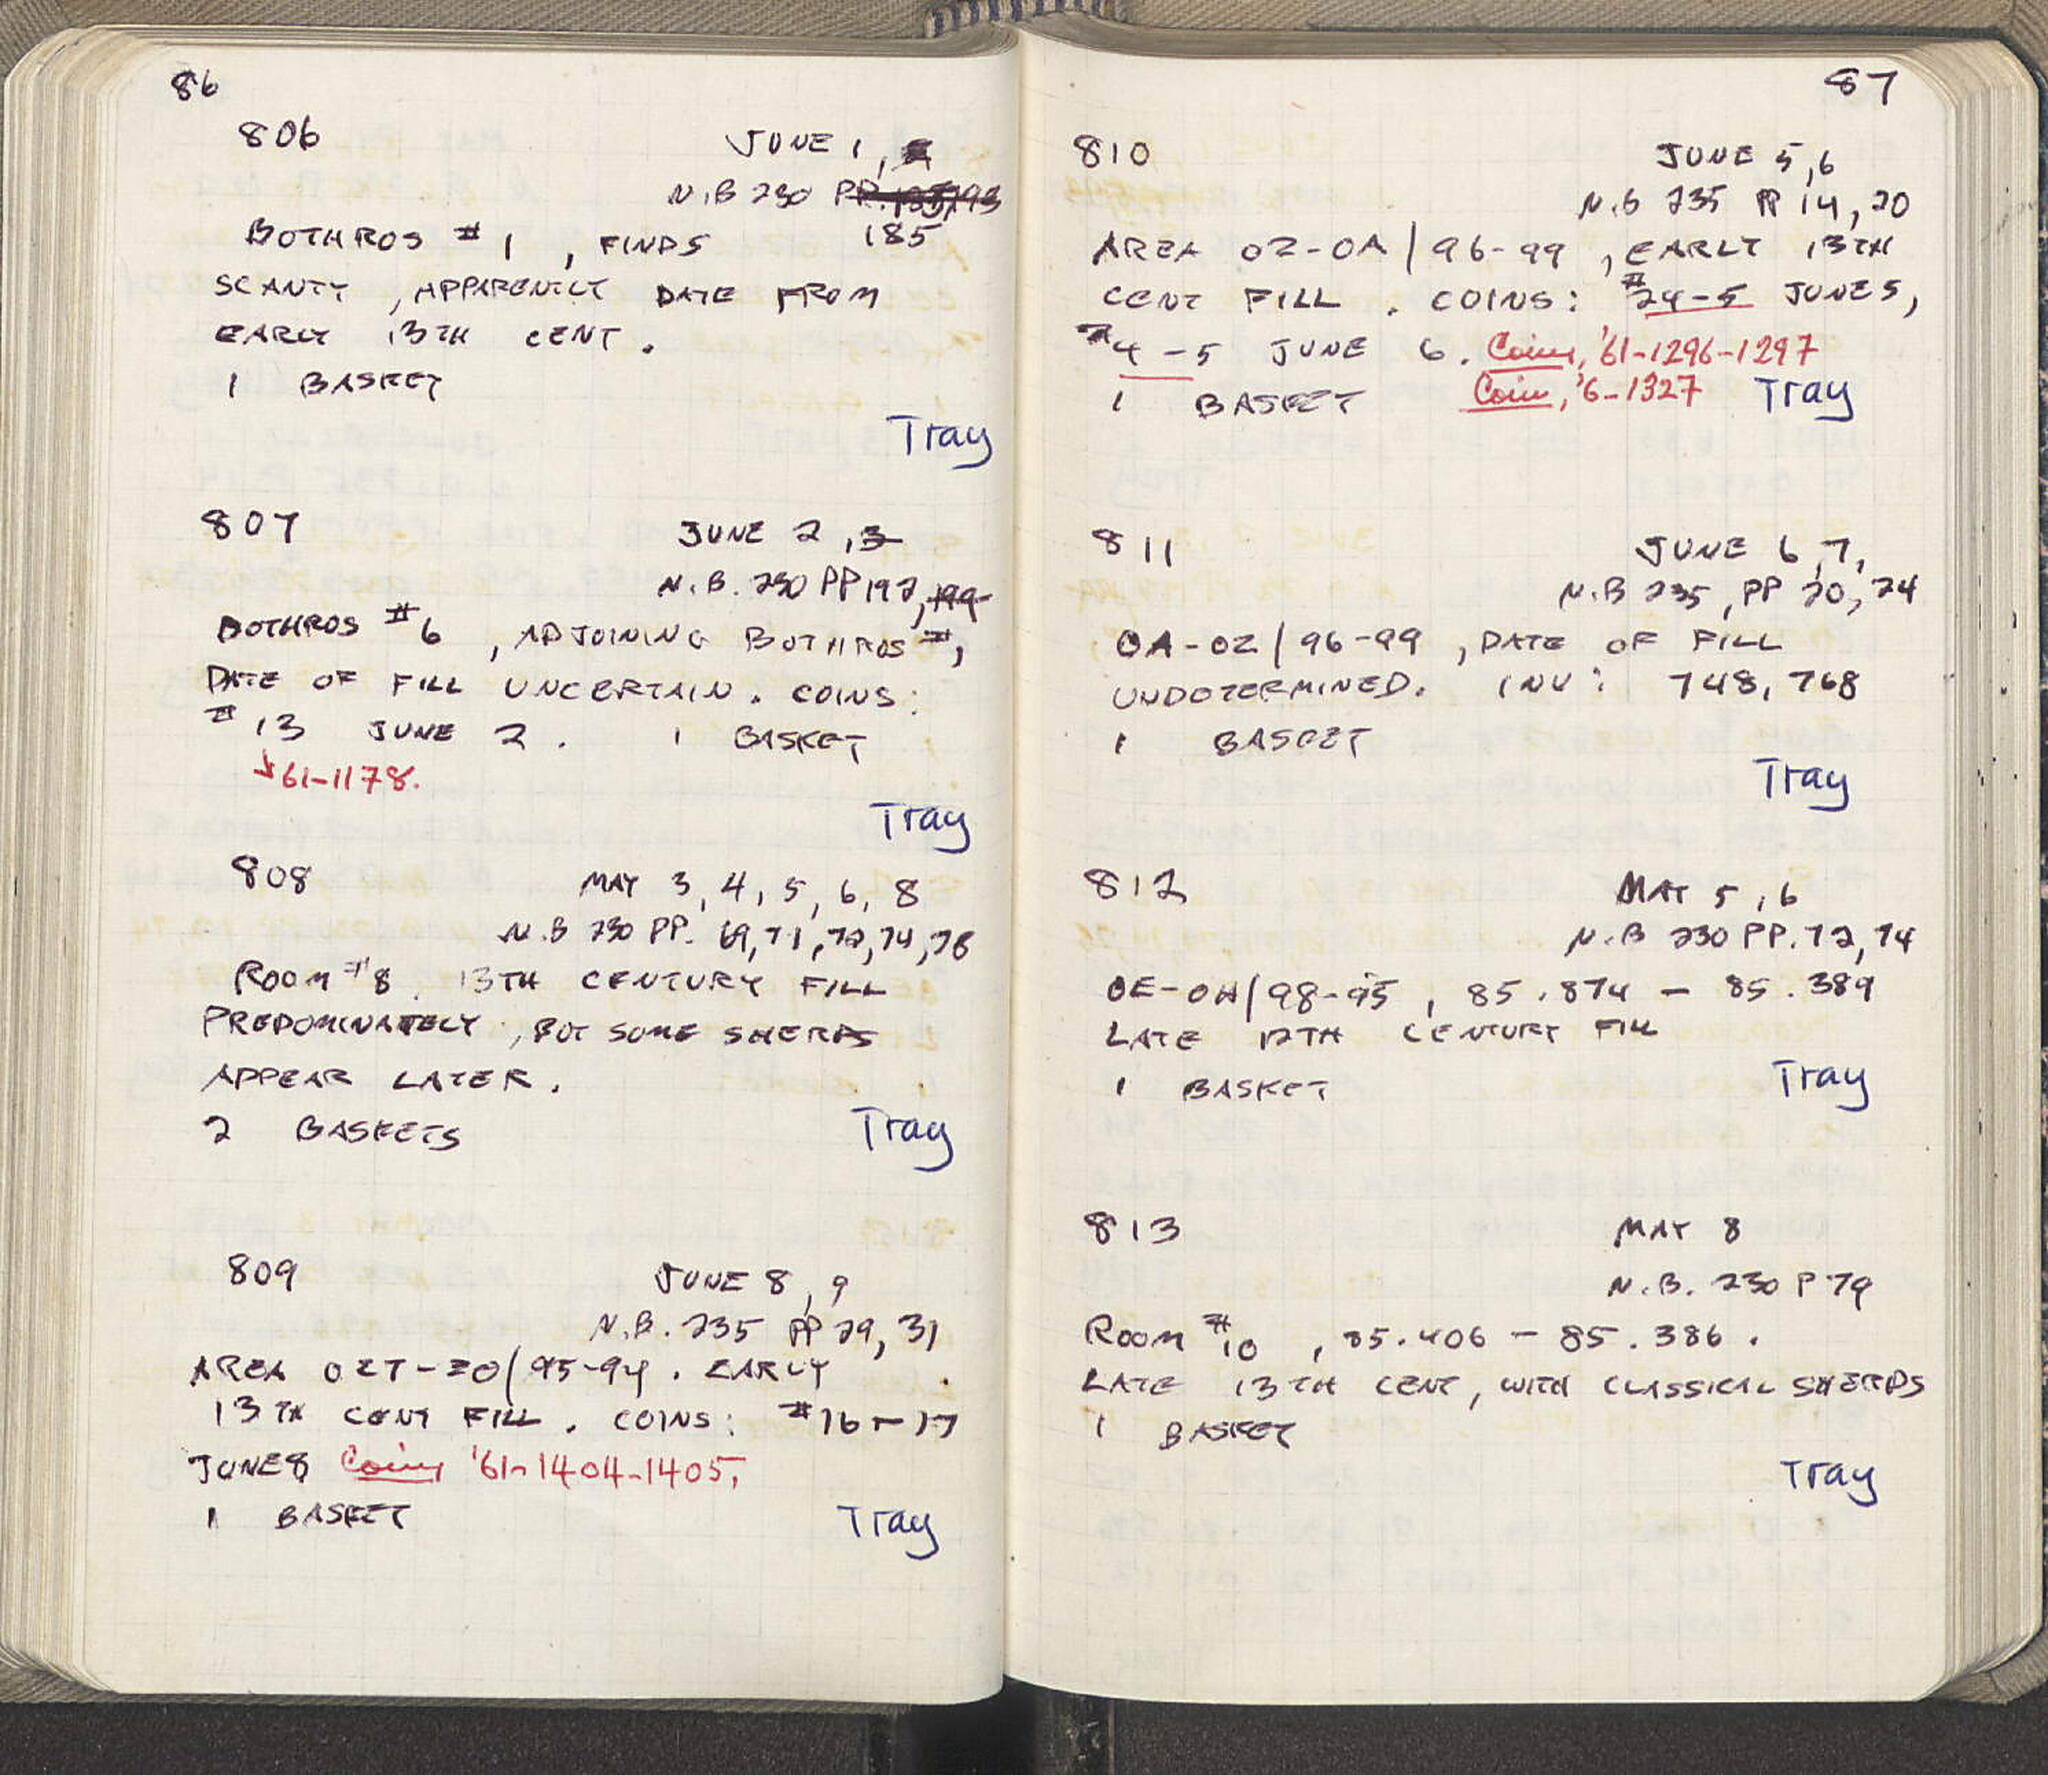 86
806
JUNE 1,
N.B 230 PP. 193
185
BOTHROS #1, FINDS
SCANTY, APPARENTLY DATE FROM
EARLY 13TH CENT.
1 BASKET
Tray
807
JUNE 2, 3
N.B. 230 PP 192, 199
BOTHROS #6, ADJOINING BOTHROS #1,
DATE OF FILL UNCERTAIN. COINS:
#13 JUNE 2. 1 BASKET
61-1178.
Tray
808
MAY 3, 4, 5, 6, 8
N.B 230 PP. 69, 71, 72, 74, 78
ROOM #8, 13TH CENTURY FILL
PREDOMINATELY, BUT SOME SHERDS
APPEAR LATER.
2 BASKETS
Tray
809
JUNE 8, 9
N.B. 235 PP 29, 31
AREA 95-94. EARLY
13TH CENT FILL. COINS: #16-17
JUNE 8 Coins '61-1404-1405,
1 BASKET
Tray
87
810
JUNE 5, 6
N.B 235 PP 14, 20
AREA OZ-OA/96-99, EARLY 13TH
CENT FILL. COINS: #24-5 JUNE 5,
#4-5 JUNE 6. Coins, '61-1296-1297
1 BASKET Coin, '6-1327 Tray
811
JUNE 6, 7,
N.B 235, PP 20, 24
OA-OZ/96-99, DATE OF FILL
UNDETERMINED. INV: 748, 768
1 BASKET
Tray
812
MAY 5, 6
N.B 230 PP. 72, 74
OE-OH/98-95, 85.874 - 85.389
LATE 12TH CENTURY FILL
1 BASKET
Tray
813
MAY 8
N.B. 230 P 79
ROOM #10, 85.406 - 85.386.
LATE 13TH CENT, WITH CLASSICAL SHERDS
1 BASKET
Tray